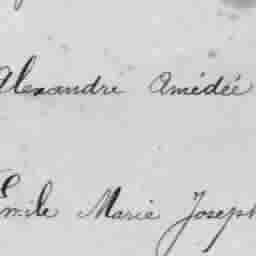 Alexandre Amédée
Emile Marie Joseph